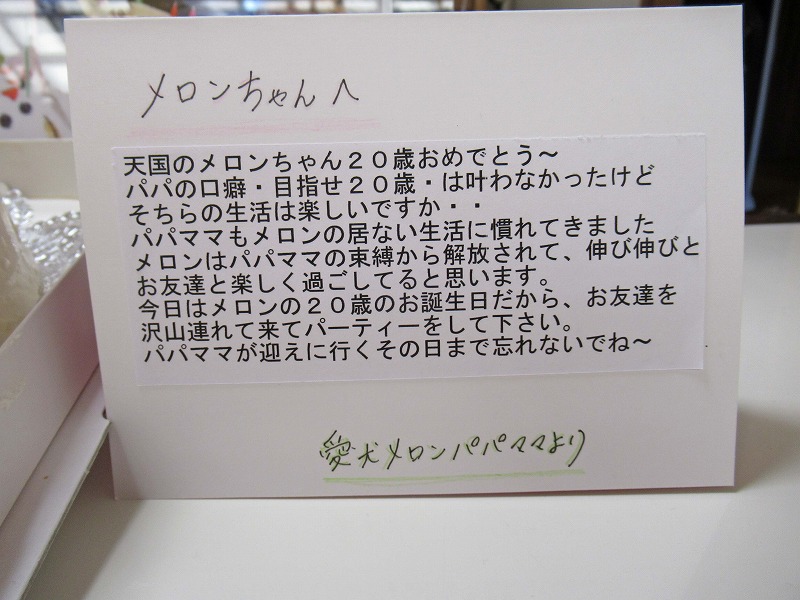 メロンちゃんへ
天国のメロンちゃん２０歳おめでとう～
パパの口癖・目指せ２０歳・は叶わなかったけど
そちらの生活は楽しいですか・・
パパママもメロンの居ない生活に慣れてきました
メロンはパパママの束縛から解放されて、伸び伸びと
お友達と楽しく過ごしてると思います。
今日はメロンの２０歳のお誕生日だから、お友達を
沢山連れて来てパーティーをして下さい。
パパママが迎えに行くその日まで忘れないでね～
愛犬メロンパパママより